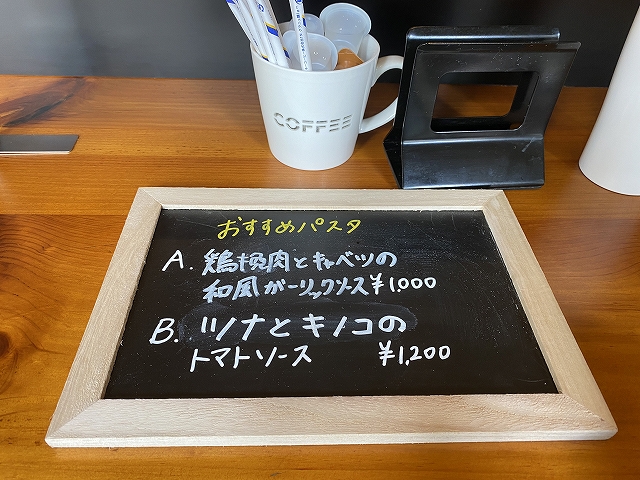 COFFEE
おすすめパスタ
A. 鶏挽肉とキャベツの
和風ガーリックソース ¥1,000
B. ツナとキノコの
トマトソース ¥1,200